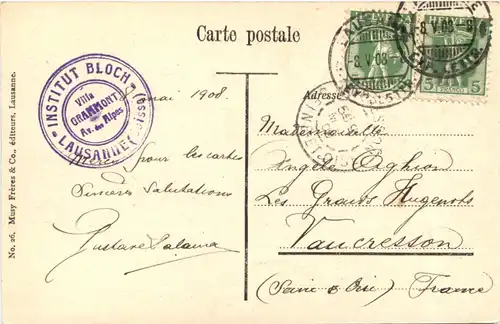 Carte postale
INSTITUT BLOCH
Villa
GRAMMONT
Av. des Alpes
LAUSANNE (Suisse)
mai 1908
Merci pour les cartes
Sincères Salutations
Gustave
LAUSANNE
-8.V.08-
-8.V.08-
5 5
FRANCO
Adresse
Mademoiselle
Angèle Aghion
Les Grands Huguenots
Vaucresson
(Seine & Oise) France
No. 26. Musy Frères & Co., éditeurs, Lausanne.